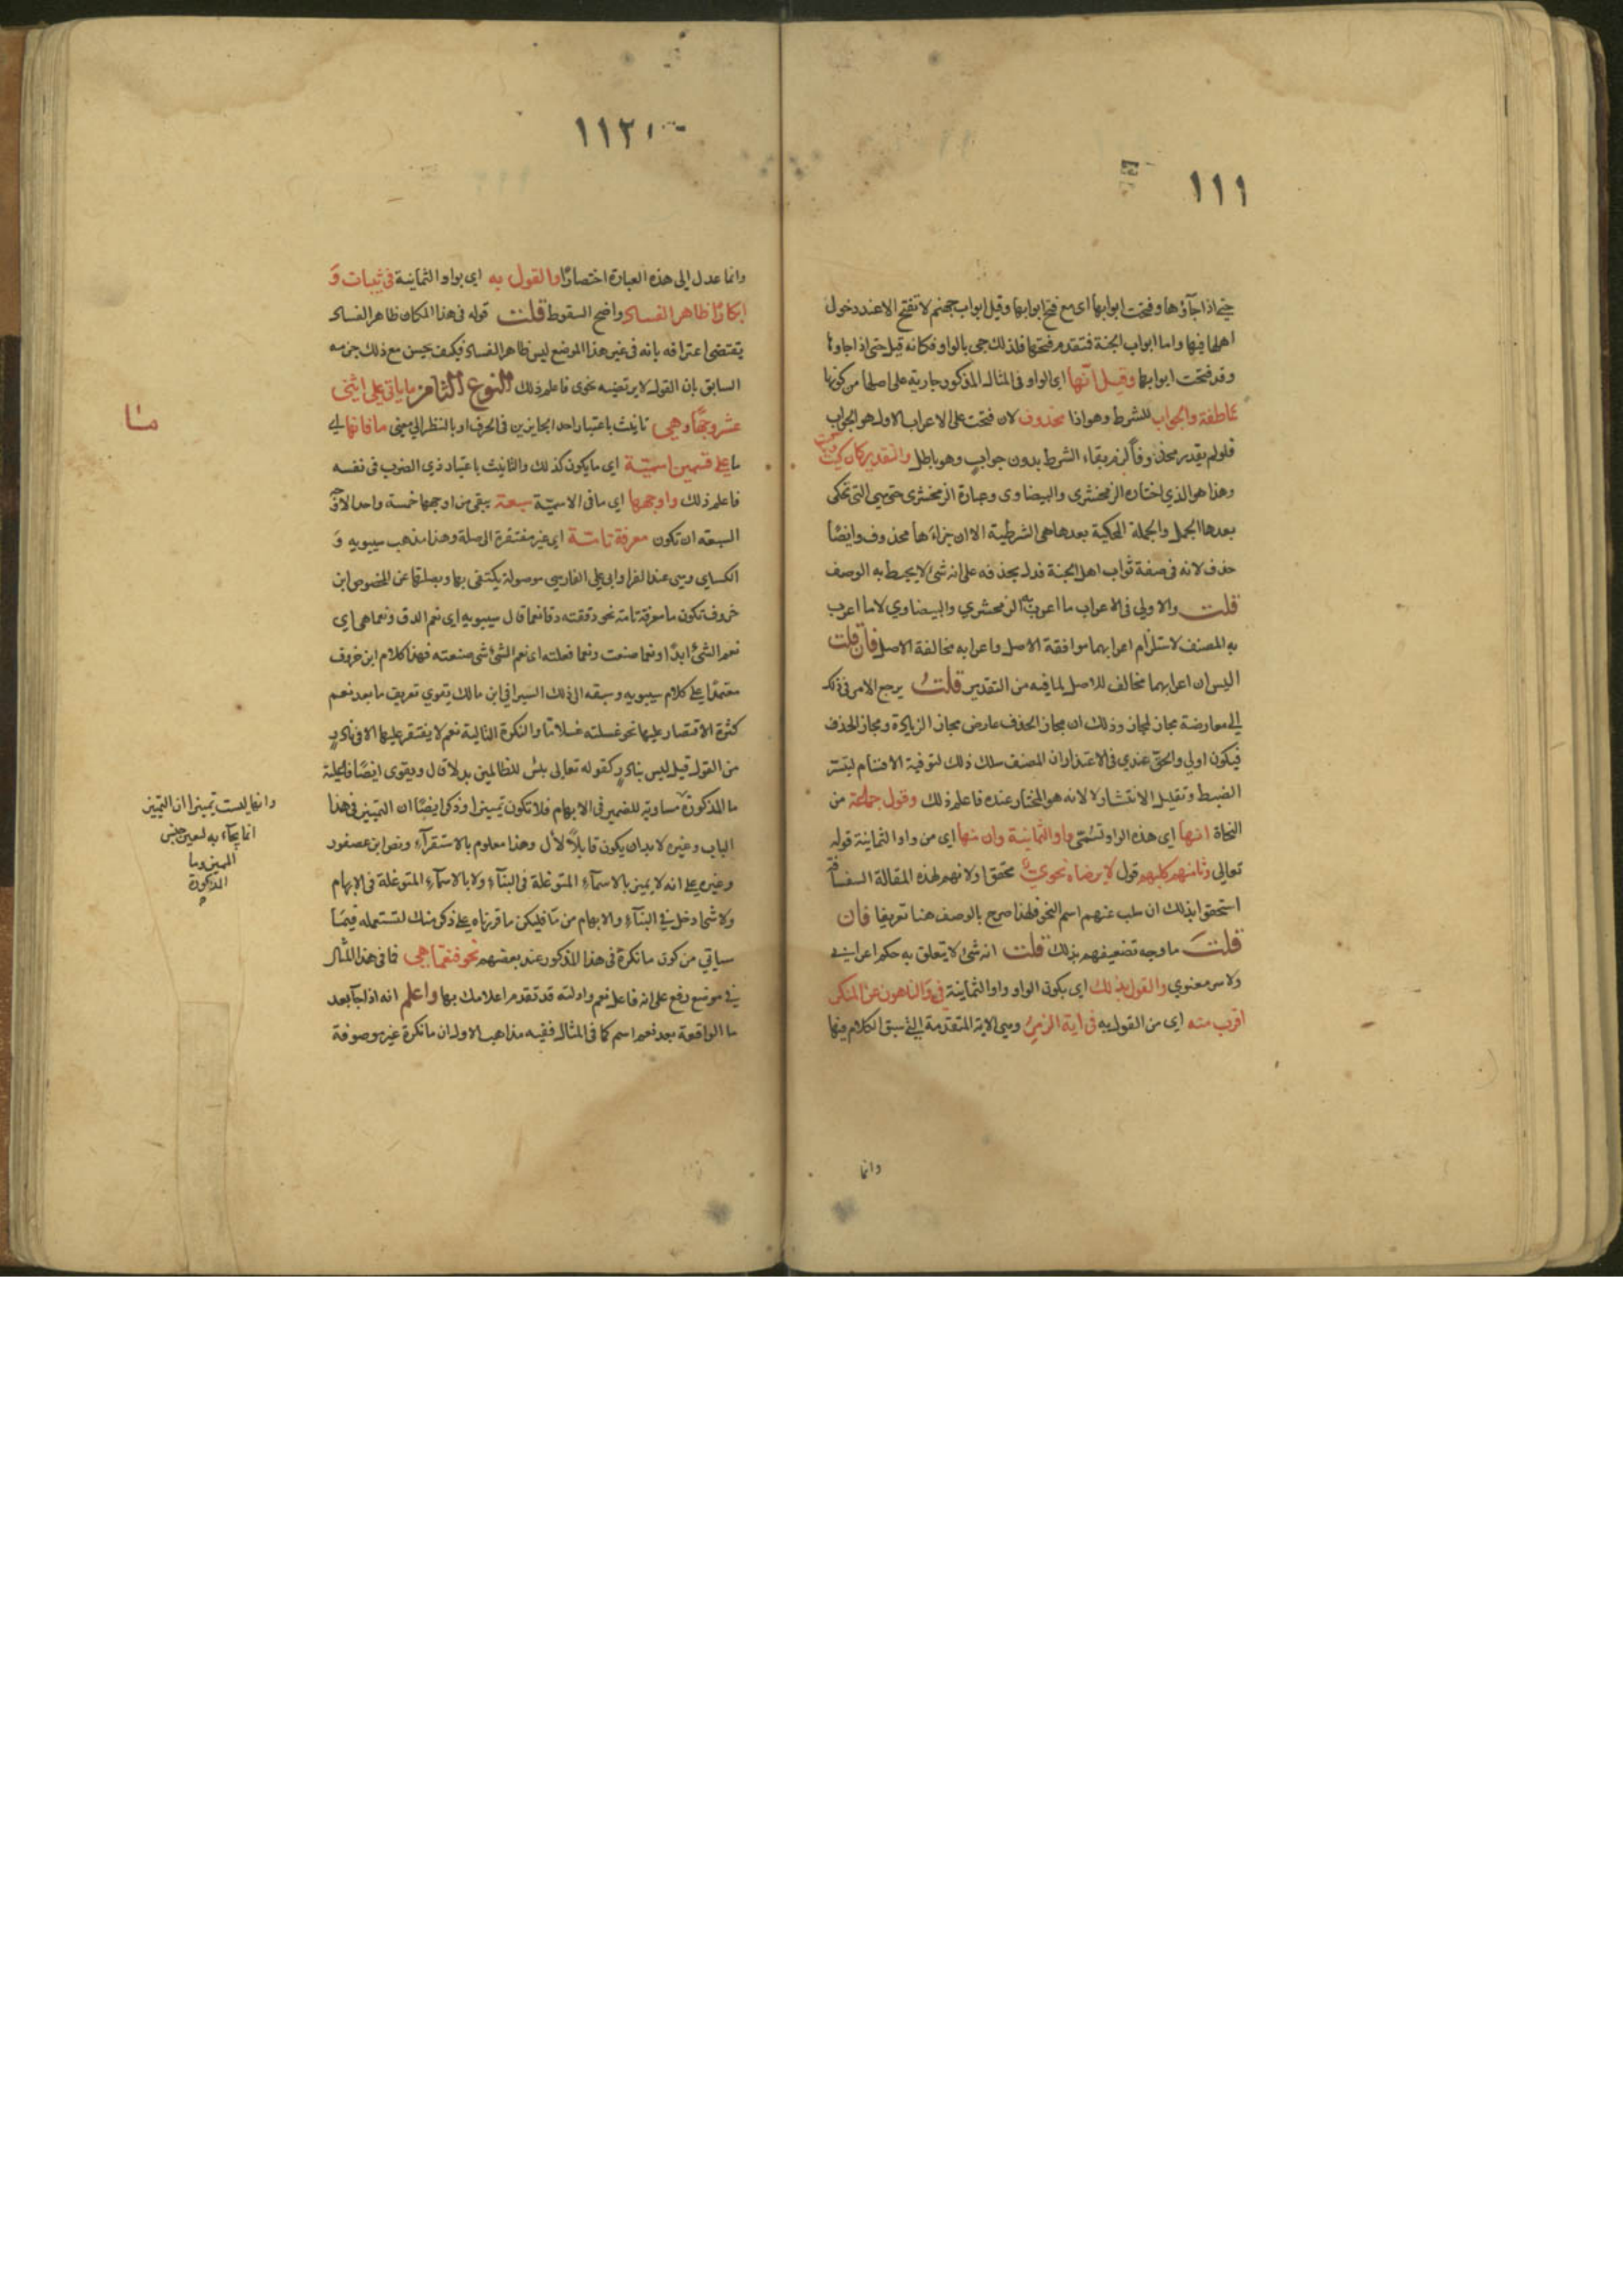 ١١١
حتى اذا جاؤها وفتحت ابوابها اى مع فتح ابوابها وقيل ابواب جهنم لا تفتح الا عند دخول
اهلها فيها واما ابواب الجنة فتقدم فتحها فلذلك جى بالواو فكانه قيل حتى اذا جاوها
وقد فتحت ابوابها وقيل انها اى الواو فى المثال المذكور جارية على اصلها من كونها
عاطفة والجواب للشرط وهو اذا محذوف لان فتحت على الاعراب الاول هو الجواب
فلو لم يقدر محذوفاً لزم بقاء الشرط بدون جواب وهو باطل والتقدير كان كيت وكيت
وهذا هو الذي اختاره الزمخشرى والبيضاوى وعبارة الزمخشرى حتى هى التى تحكى
بعدها الجمل والجملة المحكية بعدها هى الشرطية الا ان جزاءها محذوف وايضًا
حذف لانه فى صفة ثواب اهل الجنة فدل بحذفه على انه شئ لا يحيط به الوصف
قلت والاولى فى الاعراب ما اعرب به الزمخشري والبيضاوي لا ما اعرب
به المصنف لاستلزام اعرابهما موافقة الاصل واعرابه مخالفة الاصل فان قلت
اليس ان اعرابهما مخالف للاصل لما فيه من التقدير قلت يرجع الامر فى ذلك
الى معارضة مجاز لمجاز وذلك ان مجاز الحذف عارض مجاز الزيادة ومجاز الحذف
فيكون اولى والحق عندي فى الاعتذار ان المصنف سلك ذلك لتوفية الاقسام ليتسر
الضبط وتقليل الانتشار لا لانه هو المختار عنده فاعلم ذلك وقول جماعة من
النحاة انها اى هذه الواو تسمى واو الثمانية وان منها اى من واو الثمانية قوله
تعالى وثامنهم كلبهم قول لا يرضاه نحوي محقق اولانهم لهذه المقالة
استحقوا بذلك ان سلب عنهم اسم النحو فلهذا صرح بالوصف هنا تعريضا فان
قلت ما وجه تضعيفهم بذلك قلت انه شئ لا يتعلق به حكم اعرابي
ولا سر معنوي والقول بذلك اى بكون الواو واو الثمانية فى والناهون عن المنكر
اقرب منه اى من القول به فى اية الزمر وهى الاية المتقدمة التى سبق الكلام فيها
وانما
١١٢
وانما عدل الى هذه العبارة اختصارًا والقول به اى بواو الثمانية فى ثيبات و
ابكارًا ظاهر الفساد واضح السقوط قلت قوله فى هذا المكان ظاهر الفساد
يقتضى اعترافه بانه فى غير هذا الموضع ليس ظاهر الفساد فكيف يحسن مع ذلك جزمه
السابق بان القول لا يرتضيه نحوى فاعلم ذلك النوع الثامن ما ياتى على اثنى
عشر وجهًا وهى تانيث باعتبار احد الجايزين فى الحرف او بالنظر الى معنى ما فانها اى
ما على قسمين اسمية اى ما يكون كذلك والتانيث باعتبار ذي الضرب فى نفسه
فاعلم ذلك واوجهها اى ما فى الاسمية سبعة بقى من اوجهها خمسة واحد الاوجه
السبعة ان تكون معرفة تامة اى غير مفتقرة الى صلة وهذا مذهب سيبويه و
الكساي وهى عند الفرا وابى على الفارسي موصولة يكتفى بها وبصلتها عن المخصوص ابن
خروف تكون ما معرفة تامة نحو دققته دقا نعما قال سيبويه اى نعم الدق ونعما هى اى
نعم الشئ ابدًا ونعما صنعت ونعما فعلته اى نعم الشئ شئ صنعته فهذا كلام ابن خروف
معتمدًا على كلام سيبويه وسبقه الى ذلك السيرافى ابن مالك يقوي تعريف ما بعد نعم
كثرة الاقتصار عليها نحو غسلته غسلا نعما والنكرة التالية نعم لا يقتصر عليها الا فى نادر
من القول قيل ليس بنادر كقوله تعالى بئس للظالمين بدلا قال ويقوى ايضًا
ما المذكورة مساوية للضمير فى الابهام فلا تكون تمييزا وذكر ايضًا ان التمييز فى هذا
الباب وغيره لابد ان يكون قابلاً لال وهذا معلوم بالاستقراء ونص ابن عصفور
وغيره على انه لا يميز بالاسماء المتوغلة فى البناء ولا بالاسماء المتوغلة فى الابهام
ولا شى ادخل فى البناء والابهام من ما فليكن ما قررناه على ذكر منك لتستعمله فيما
سياتي من كون ما نكرة فى هذا المذكور عند بعضهم نحو فنعما هى فما فى هذا المثال
فى موضع رفع على انه فاعل نعم وادلته قد تقدم اعلامك بها واعلم انه اذا جا بعد
ما الواقعة بعد نعم اسم كما فى المثال ففيه مذاهب الاول ان ما نكرة غير موصوفة
ما
وانها ليست تمييزا ان التمييز
انما يجاء به لتعيين جنس
المميز وما
المذكورة